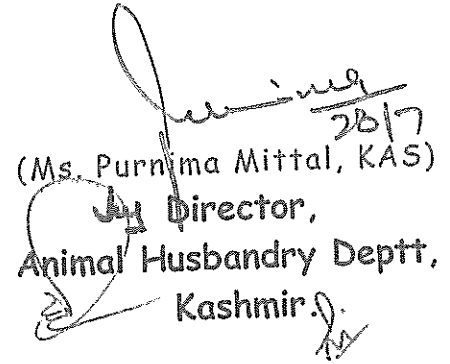 28/7
(Ms. Purnima Mittal, KAS)
Director,
Animal Husbandry Deptt,
Kashmir.